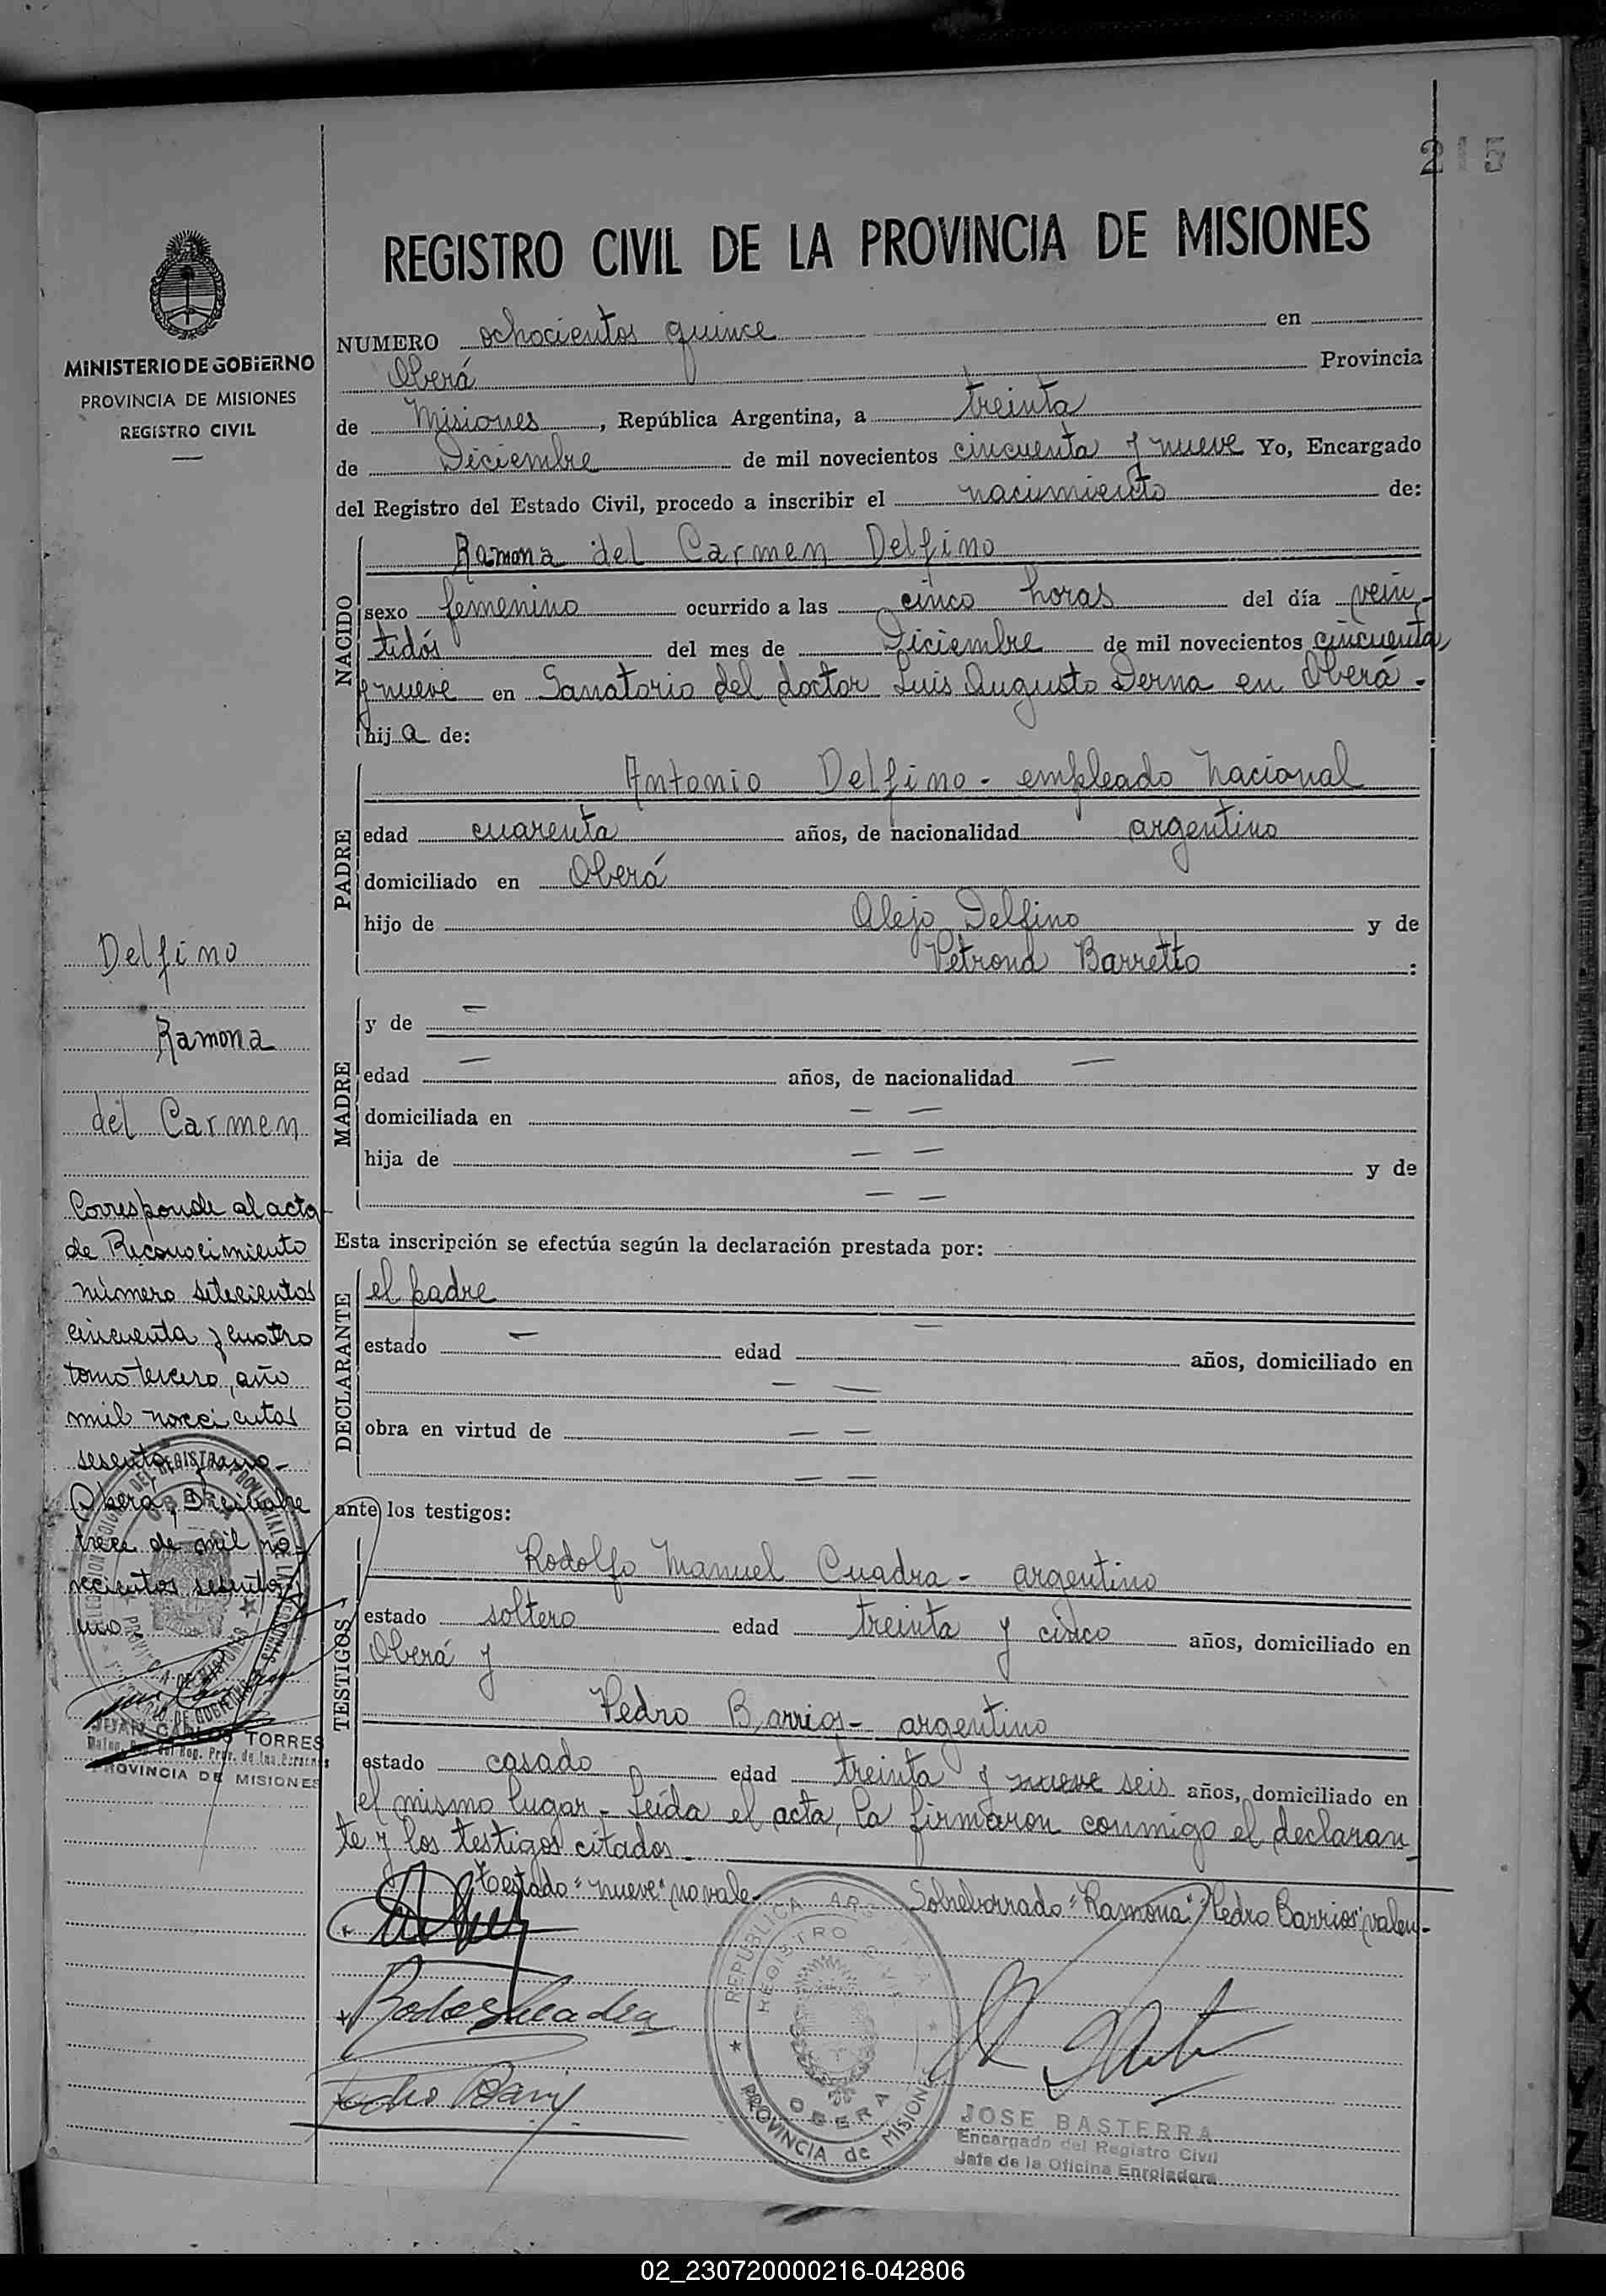 215
REGISTRO CIVIL DE LA PROVINCIA DE MISIONES
MINISTERIO DE GOBIERNO
PROVINCIA DE MISIONES
REGISTRO CIVIL
NUMERO ochocientos quince en
Oberá Provincia
de Misiones, República Argentina, a treinta
de Diciembre de mil novecientos cincuenta y nueve Yo, Encargado
del Registro del Estado Civil, procedo a inscribir el nacimiento de:
NACIDO
Ramona del Carmen Delfino
sexo femenino ocurrido a las cinco horas del día vein-
tidós del mes de Diciembre de mil novecientos cincuenta
y nueve en Sanatorio del doctor Luis Augusto Derna en Oberá.
hija de:
PADRE
Antonio Delfino - empleado Nacional
edad cuarenta años, de nacionalidad argentino
domiciliado en Oberá
hijo de Alejo Delfino y de
Petrona Barretto :
MADRE
y de —
edad — años, de nacionalidad —
domiciliada en — —
hija de — — y de
— —
Esta inscripción se efectúa según la declaración prestada por:
DECLARANTE
el padre
estado — edad — años, domiciliado en
— —
obra en virtud de — —
— —
ante los testigos:
TESTIGOS
Rodolfo Manuel Cuadra - argentino
estado soltero edad treinta y cinco años, domiciliado en
Oberá y
Pedro Barrios - argentino
estado casado edad treinta y nueve seis años, domiciliado en
el mismo lugar - Leída el acta, la firmaron conmigo el declaran
te y los testigos citados.
testado "nueve" no vale - Sobreborrado "Ramona" "Pedro Barrios" valen-
Delfino
Ramona
del Carmen
Corresponde al acta
de Reconocimiento
número setecientos
cincuenta y cuatro
tomo tercero, año
mil novecientos
sesenta y uno-
Oberá, Diciembre
trece de mil no-
vecientos sesenta y
uno -
JUAN CARLOS TORRES
PROVINCIA DE MISIONES
REPUBLICA ARGENTINA
REGISTRO CIVIL
OBERA
PROVINCIA de MISIONES
JOSE BASTERRA
Encargado del Registro Civil
Jefe de la Oficina Enroladora
02_230720000216-042806